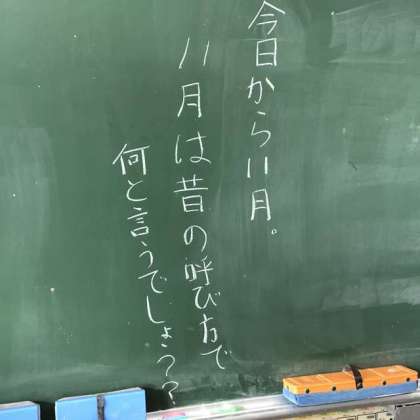 今日から11月。
11月は昔の呼び方で
何と言うでしょう??